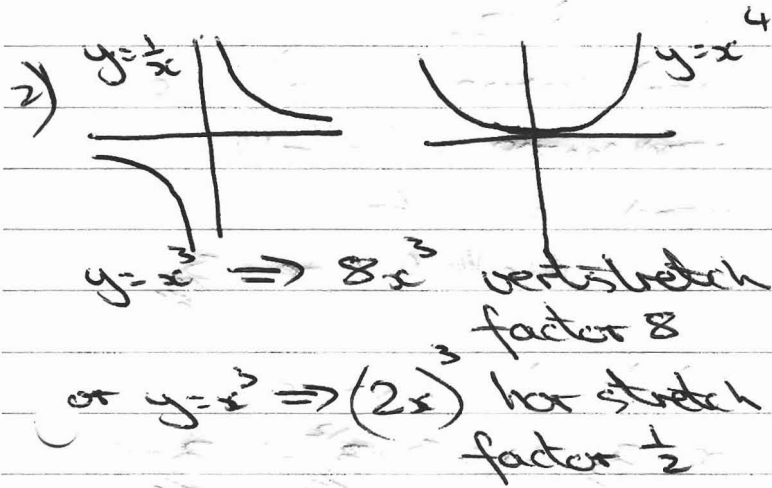 2) y=1/x y=x⁴
y=x³ ⇒ 8x³ vert stretch
factor 8
or y=x³ ⇒ (2x)³ hor stretch
factor 1/2